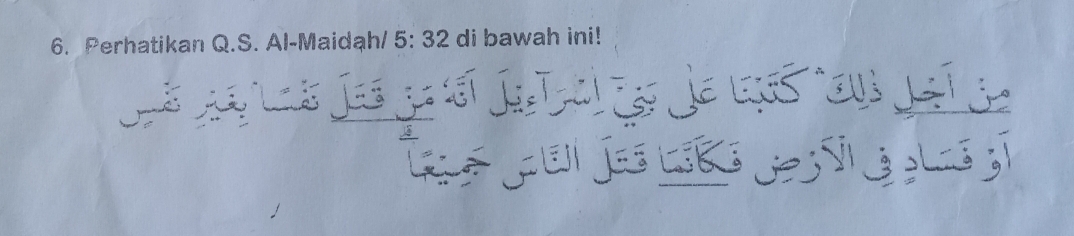 6. Perhatikan Q.S. Al-Maidah/ 5: 32 di bawah ini!
مِنْ اَجْلِ ذٰلِكَ ۛ كَتَبْنَا عَلٰى بَنِيْٓ اِسْرَاۤءِيْلَ اَنَّهٗ مَنْ قَتَلَ نَفْسًاۢ بِغَيْرِ نَفْسٍ
اَوْ فَسَادٍ فِى الْاَرْضِ فَكَاَنَّمَا قَتَلَ النَّاسَ جَمِيْعًاۗ